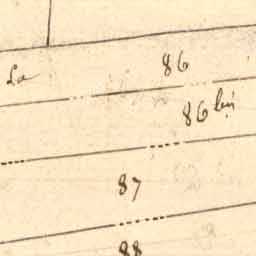 La
86
86 bis
87
88